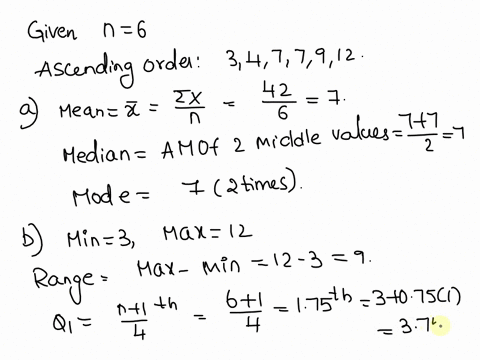 Given n=6
Ascending order: 3,4,7,7,9,12.
a) Mean = x̄ = Σx/n = 42/6 = 7.
Median = AM Of 2 middle values = 7+7/2 = 7
Mode = 7 (2 times).
b) Min=3, Max=12
Range = Max - Min = 12-3 = 9.
Q1 = n+1/4 th = 6+1/4 = 1.75th = 3+0.75(1)
= 3.7